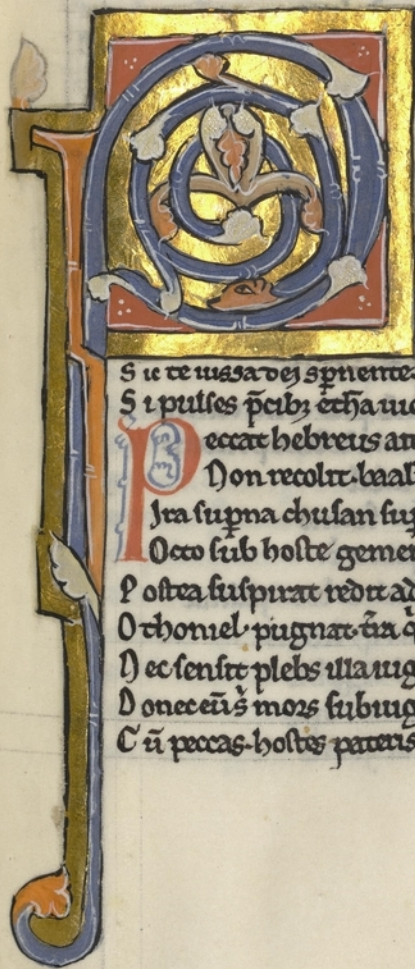 S ic te iussa dei spnente
S i pulses p̄cib; etha
P eccat hebreus an
Non recolit·baal
Ira sup̄na chusan sup
Octo sub hoste gemen
P ostea suspirat redit ad
O thoniel·pugnat·t̄ra q
N ec sensit plebs illa iug
D onec ei' mors subiug
C ū peccas·hostes pateris